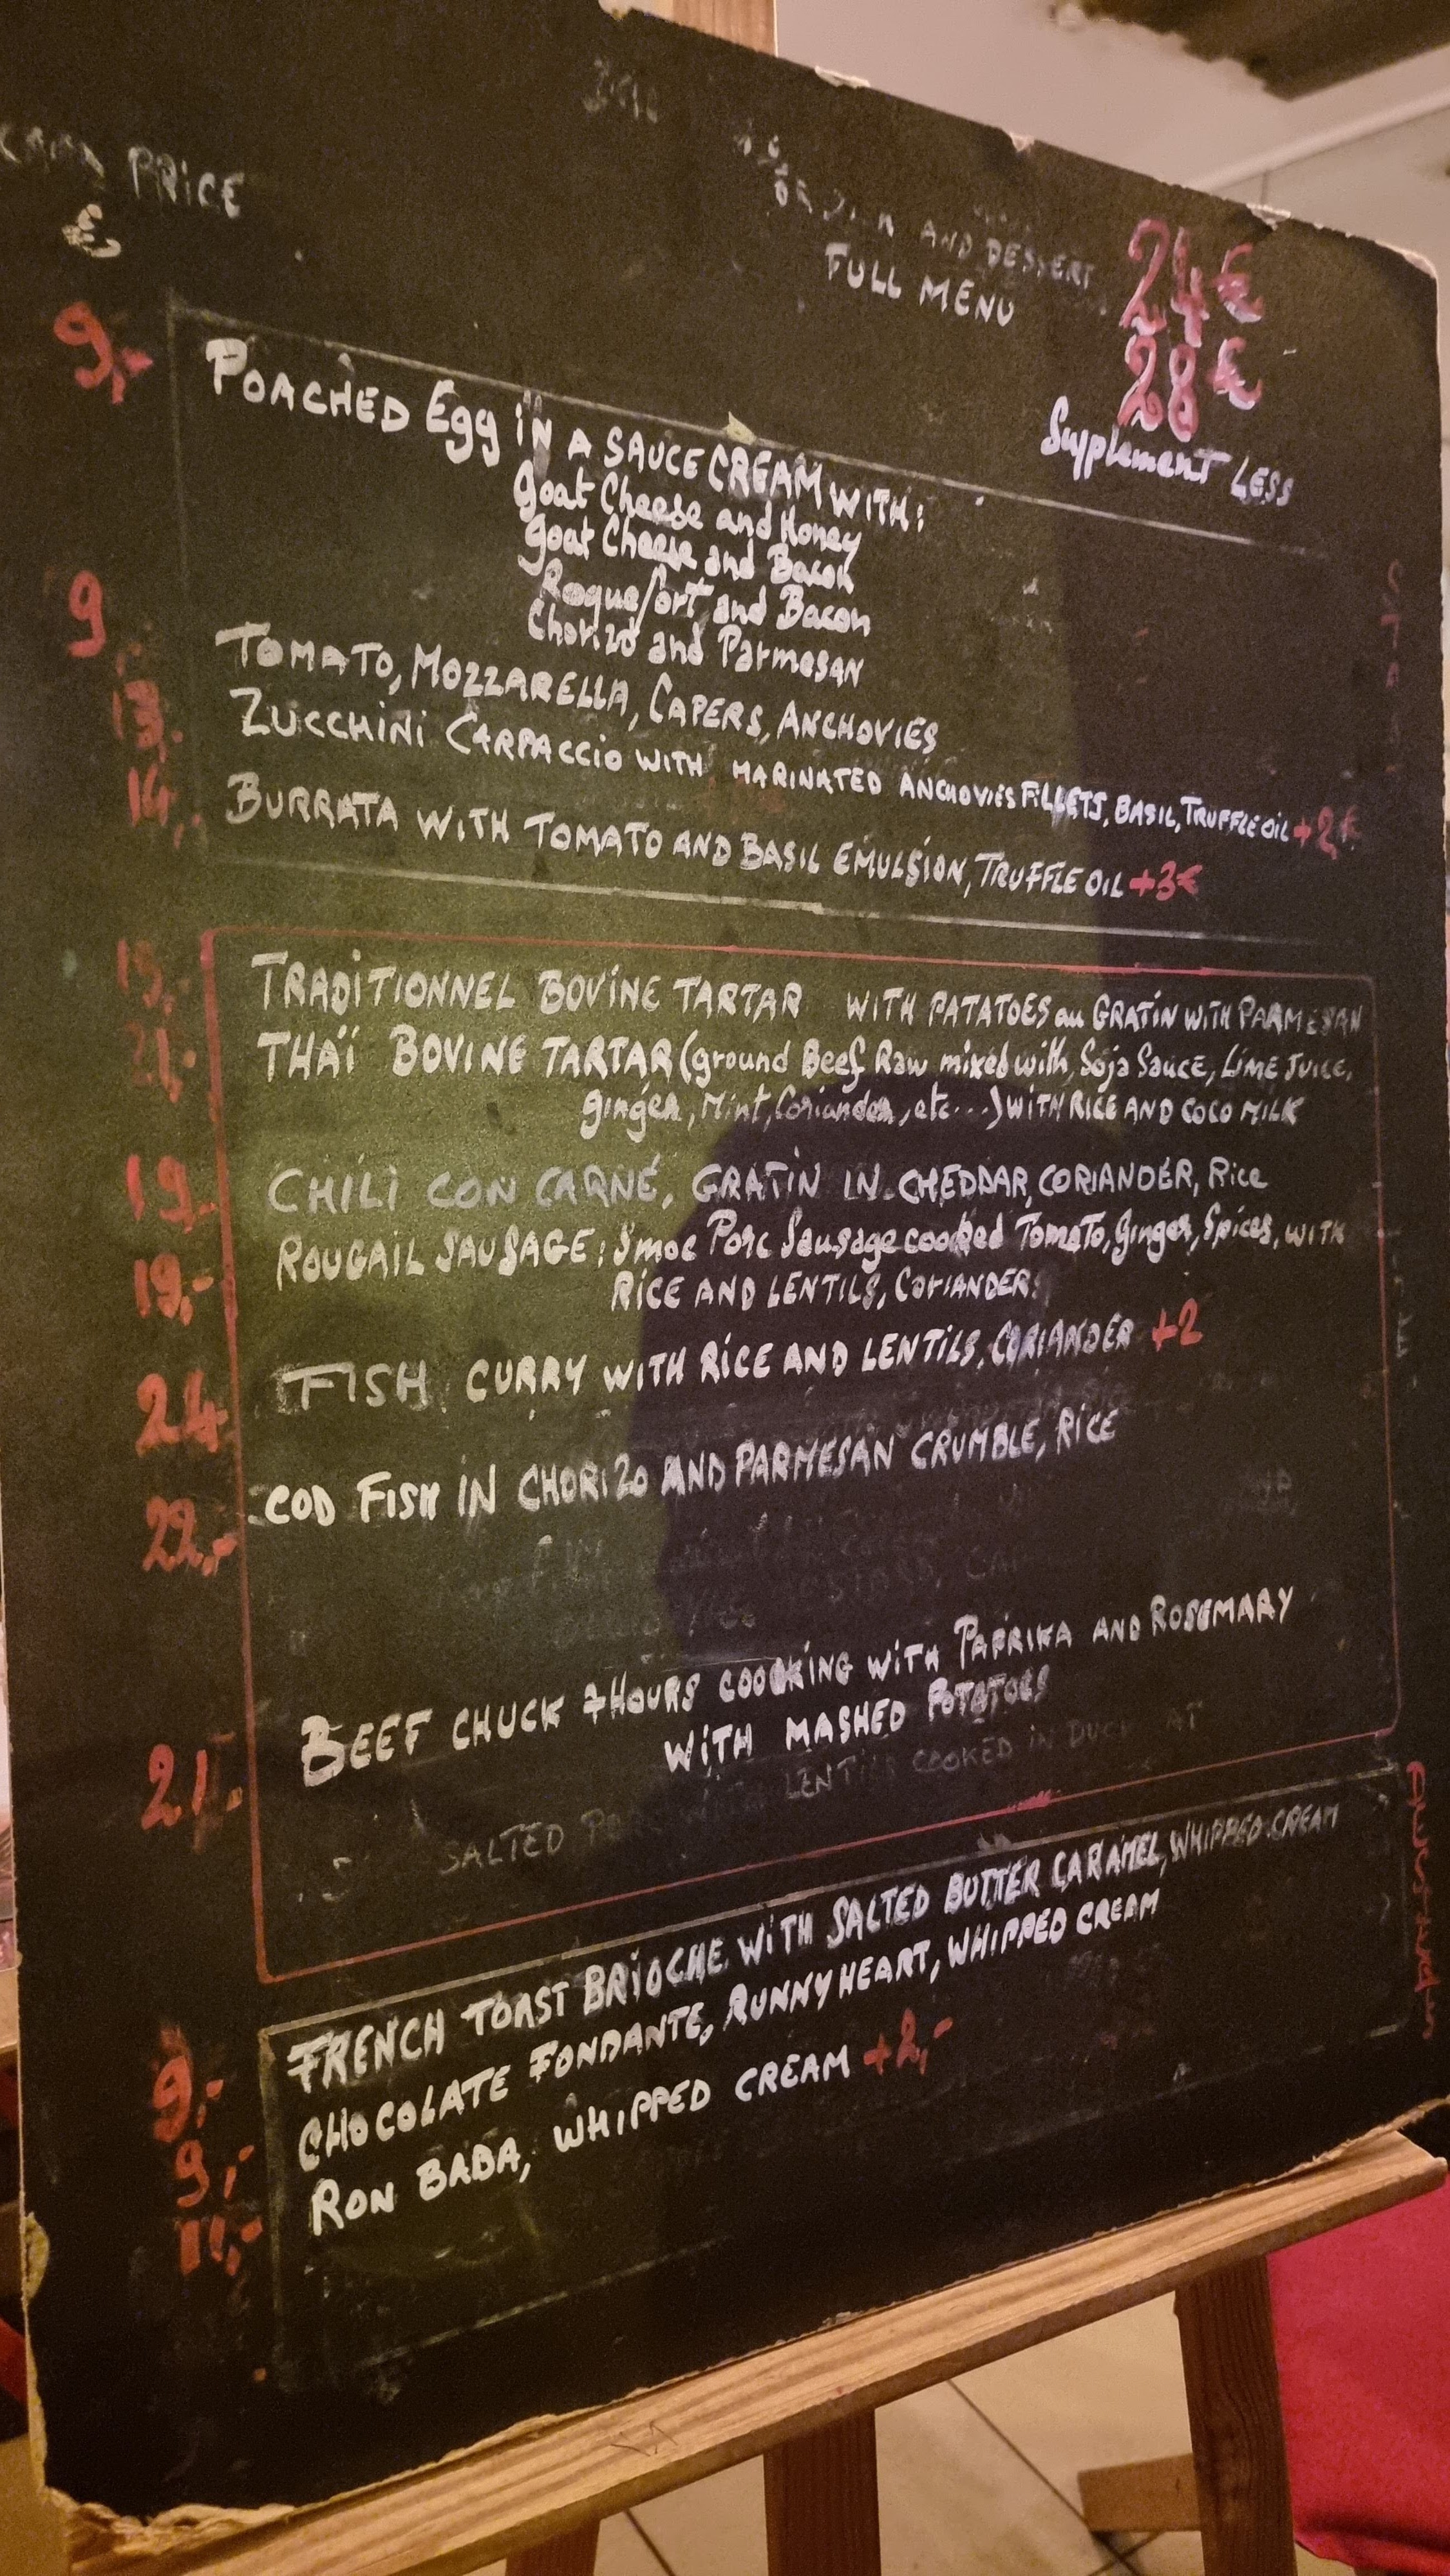 PRICE
€
AND DESSERT 24€
FULL MENU 28€
Supplement LESS
9,- POACHED Egg iN A SAUCE CREAM WITH:
Goat Cheese and Honey
Goat Cheese and Bacon
Roquefort and Bacon
Chorizo and Parmesan
9 TOMATO, MOZZARELLA, CAPERS, ANCHOVIES
13,- ZUCCHINI CARPACCIO WITH MARINATED ANCHOVIES FILLETS, BASIL, TRUFFLE OIL +2€
14,- BURRATA WITH TOMATO AND BASIL EMULSION, TRUFFLE OIL +3€
TRADITIONNEL BOVINE TARTAR WITH PATATOES au GRATIN WITH PARMESAN
21,- THAÏ BOVINE TARTAR (ground Beef Raw mixed with, Soja Sauce, LIME JUICE,
ginger, Mint, Coriander, etc...) WITH RICE AND COCO MILK
19,- CHILI CON CARNÉ, GRATIN IN CHEDDAR, CORIANDER, Rice
19,- ROUGAIL SAUSAGE: Smoc Porc Sausage cooked Tomato, Ginger, Spices, WITH
RICE AND LENTILS, CORIANDER
24 FISH CURRY WITH RICE AND LENTILS, CORIANDER +2
22,- COD FISH IN CHORIZO AND PARMESAN CRUMBLE, RICE
21,- BEEF CHUCK 7HOURS COOOKING WITH PAPRIKA AND ROSEMARY
WITH MASHED POTATOES
SALTED LENTILS COOKED IN DUCK
9,- FRENCH TOAST BRIOCHE WITH SALTED BUTTER CARAMEL, WHIPPED CREAM
9,- CHOCOLATE FONDANTE, RUNNY HEART, WHIPPED CREAM
11,- RON BABA, WHIPPED CREAM +2,-